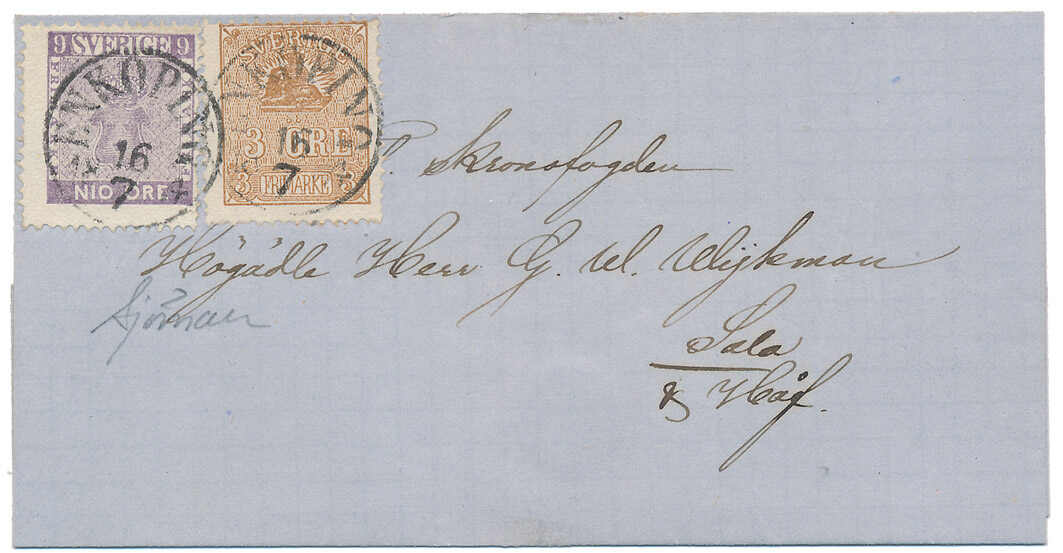 9 SVERIGE 9
NIO ÖRE
SVERIGE
3 ÖRE
3 FRIMÄRKE 3
ENKÖPING
16
7
ENKÖPING
16
7
Kronofogden
Högädle Herr G. W. Wijkman
Sala
Håf.